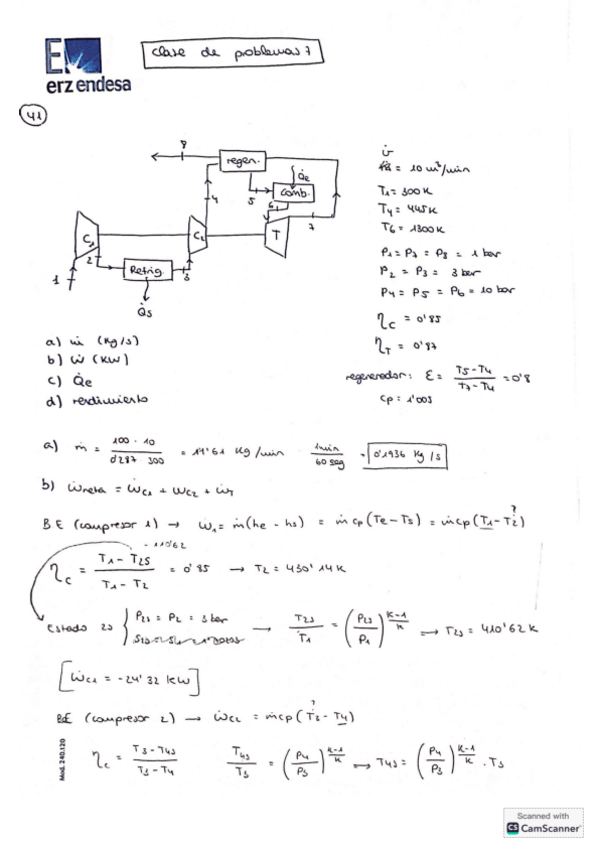 Clase de problemas 7
erz endesa
41
8
regen.
Q̇e
comb.
4
5
6
7
C1
C2
T
2
1
Refrig.
3
Q̇s
V̇
= 10 m³/min
T1 = 300 K
T4 = 445 K
T6 = 1300 K
P1 = P7 = P8 = 1 bar
P2 = P3 = 3 bar
P4 = P5 = P6 = 10 bar
ηC = 0'85
ηT = 0'87
regenerador: ε = (T5 - T4)/(T7 - T4) = 0'8
cp = 1'003
a) ṁ (kg/s)
b) ẇ (kW)
c) Q̇e
d) rendimiento
a) ṁ = (100 · 10)/(0'287 · 300) = 11'61 kg/min · 1min/60 seg = 0'1936 kg/s
b) ẇneta = ẇC1 + ẇC2 + ẇT
BE (compresor 1) → ẇ1 = ṁ(he - hs) = ṁcp(Te - Ts) = ṁcp(T1 - T2)
?
- 110'62
ηC = (T1 - T2s)/(T1 - T2) = 0'85 → T2 = 430'14 K
Estado 2s { P2s = P2 = 3 bar → T2s/T1 = (P2s/P1)^((k-1)/k) → T2s = 410'62 K
[ẇC1 = -24'32 kW]
BE (compresor 2) → ẇC2 = ṁcp(T3 - T4)
?
ηc = (T3 - T4s)/(T3 - T4) T4s/T3 = (P4/P3)^((k-1)/k) → T4s = (P4/P3)^((k-1)/k) · T3
Mod. 240.120
Scanned with
CS CamScanner